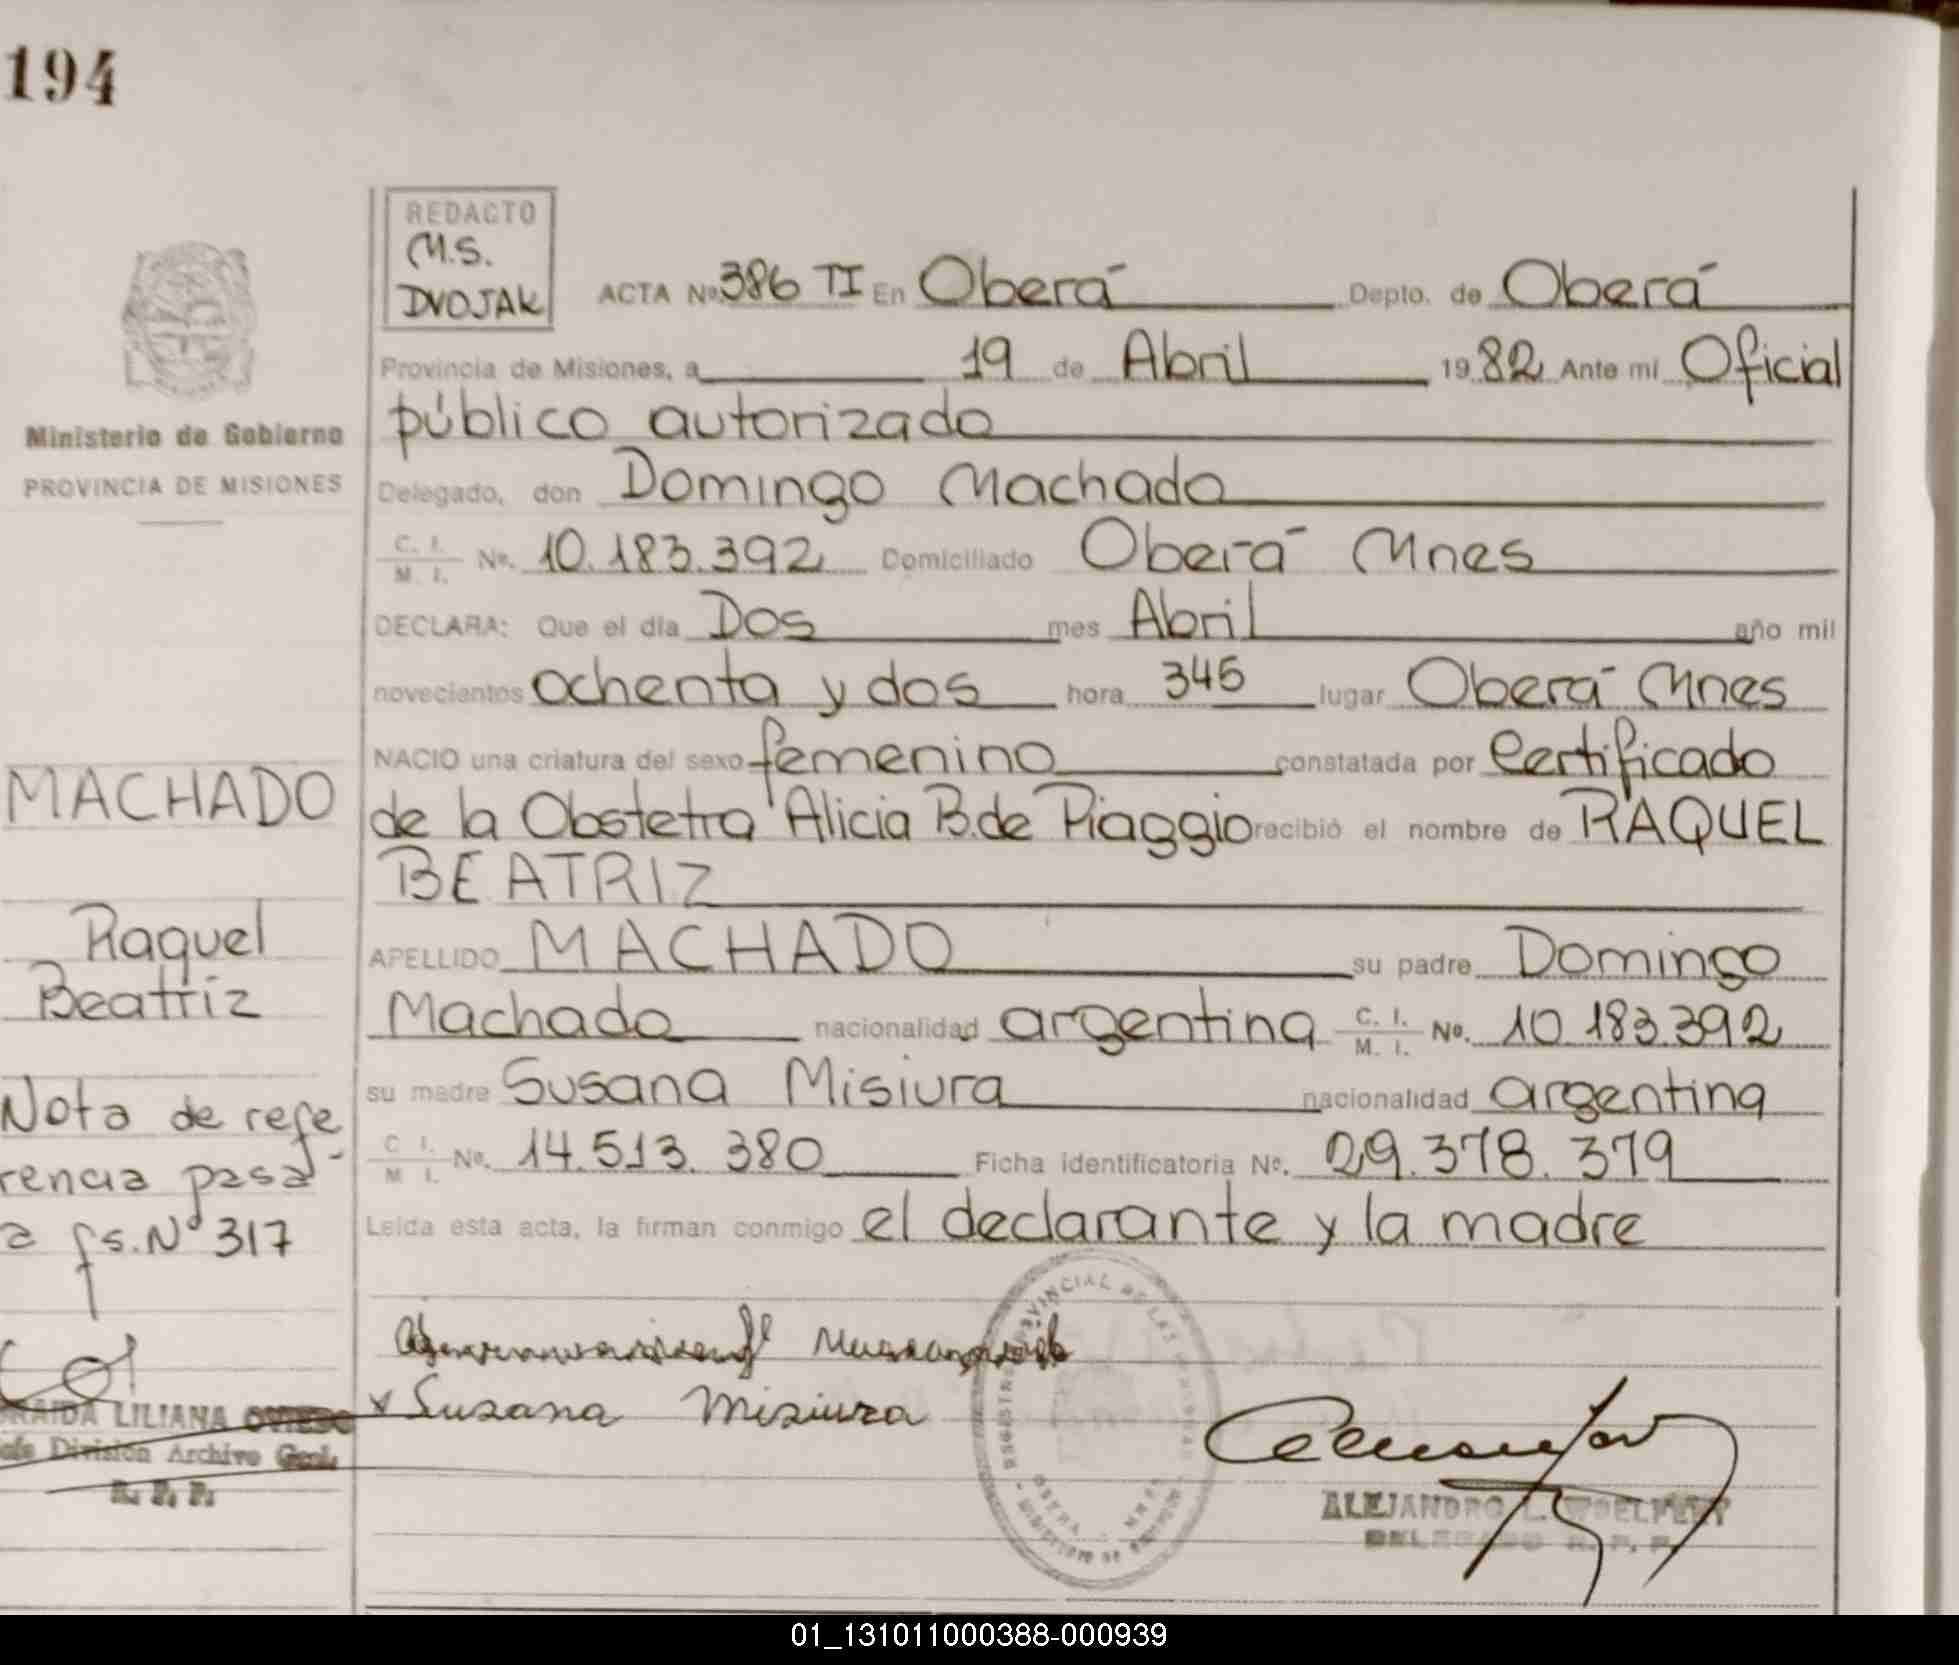 194
REDACTO
M.S.
DVOJAK
ACTA Nº 386 TI En Oberá Depto. de Oberá
Provincia de Misiones, a 19 de Abril 1982 Ante mi Oficial
público autorizado
Delegado, don Domingo Machado
C. I.
M. I. Nº. 10.183.392 Domiciliado Oberá Mnes
DECLARA: Que el día Dos mes Abril año mil
novecientos ochenta y dos hora 345 lugar Oberá Mnes
NACIO una criatura del sexo femenino constatada por Certificado
de la Obstetra Alicia B. de Piaggio recibió el nombre de RAQUEL
BEATRIZ
APELLIDO MACHADO su padre Domingo
Machado nacionalidad argentina C. I. M. I. Nº. 10.183.392
su madre Susana Misiura nacionalidad argentina
C. I. M. I. Nº. 14.513.380 Ficha identificatoria Nº. 29.378.379
Leída esta acta, la firman conmigo el declarante y la madre
x Susana Misiura
ALEJANDRO L.
DELEGADO R. P. P.
Ministerio de Gobierno
PROVINCIA DE MISIONES
MACHADO
Raquel
Beatriz
Nota de refe
rencia pasa
a fs. Nº 317
LILIANA OVIEDO
División Archivo Gral.
R. P. P.
01_131011000388-000939